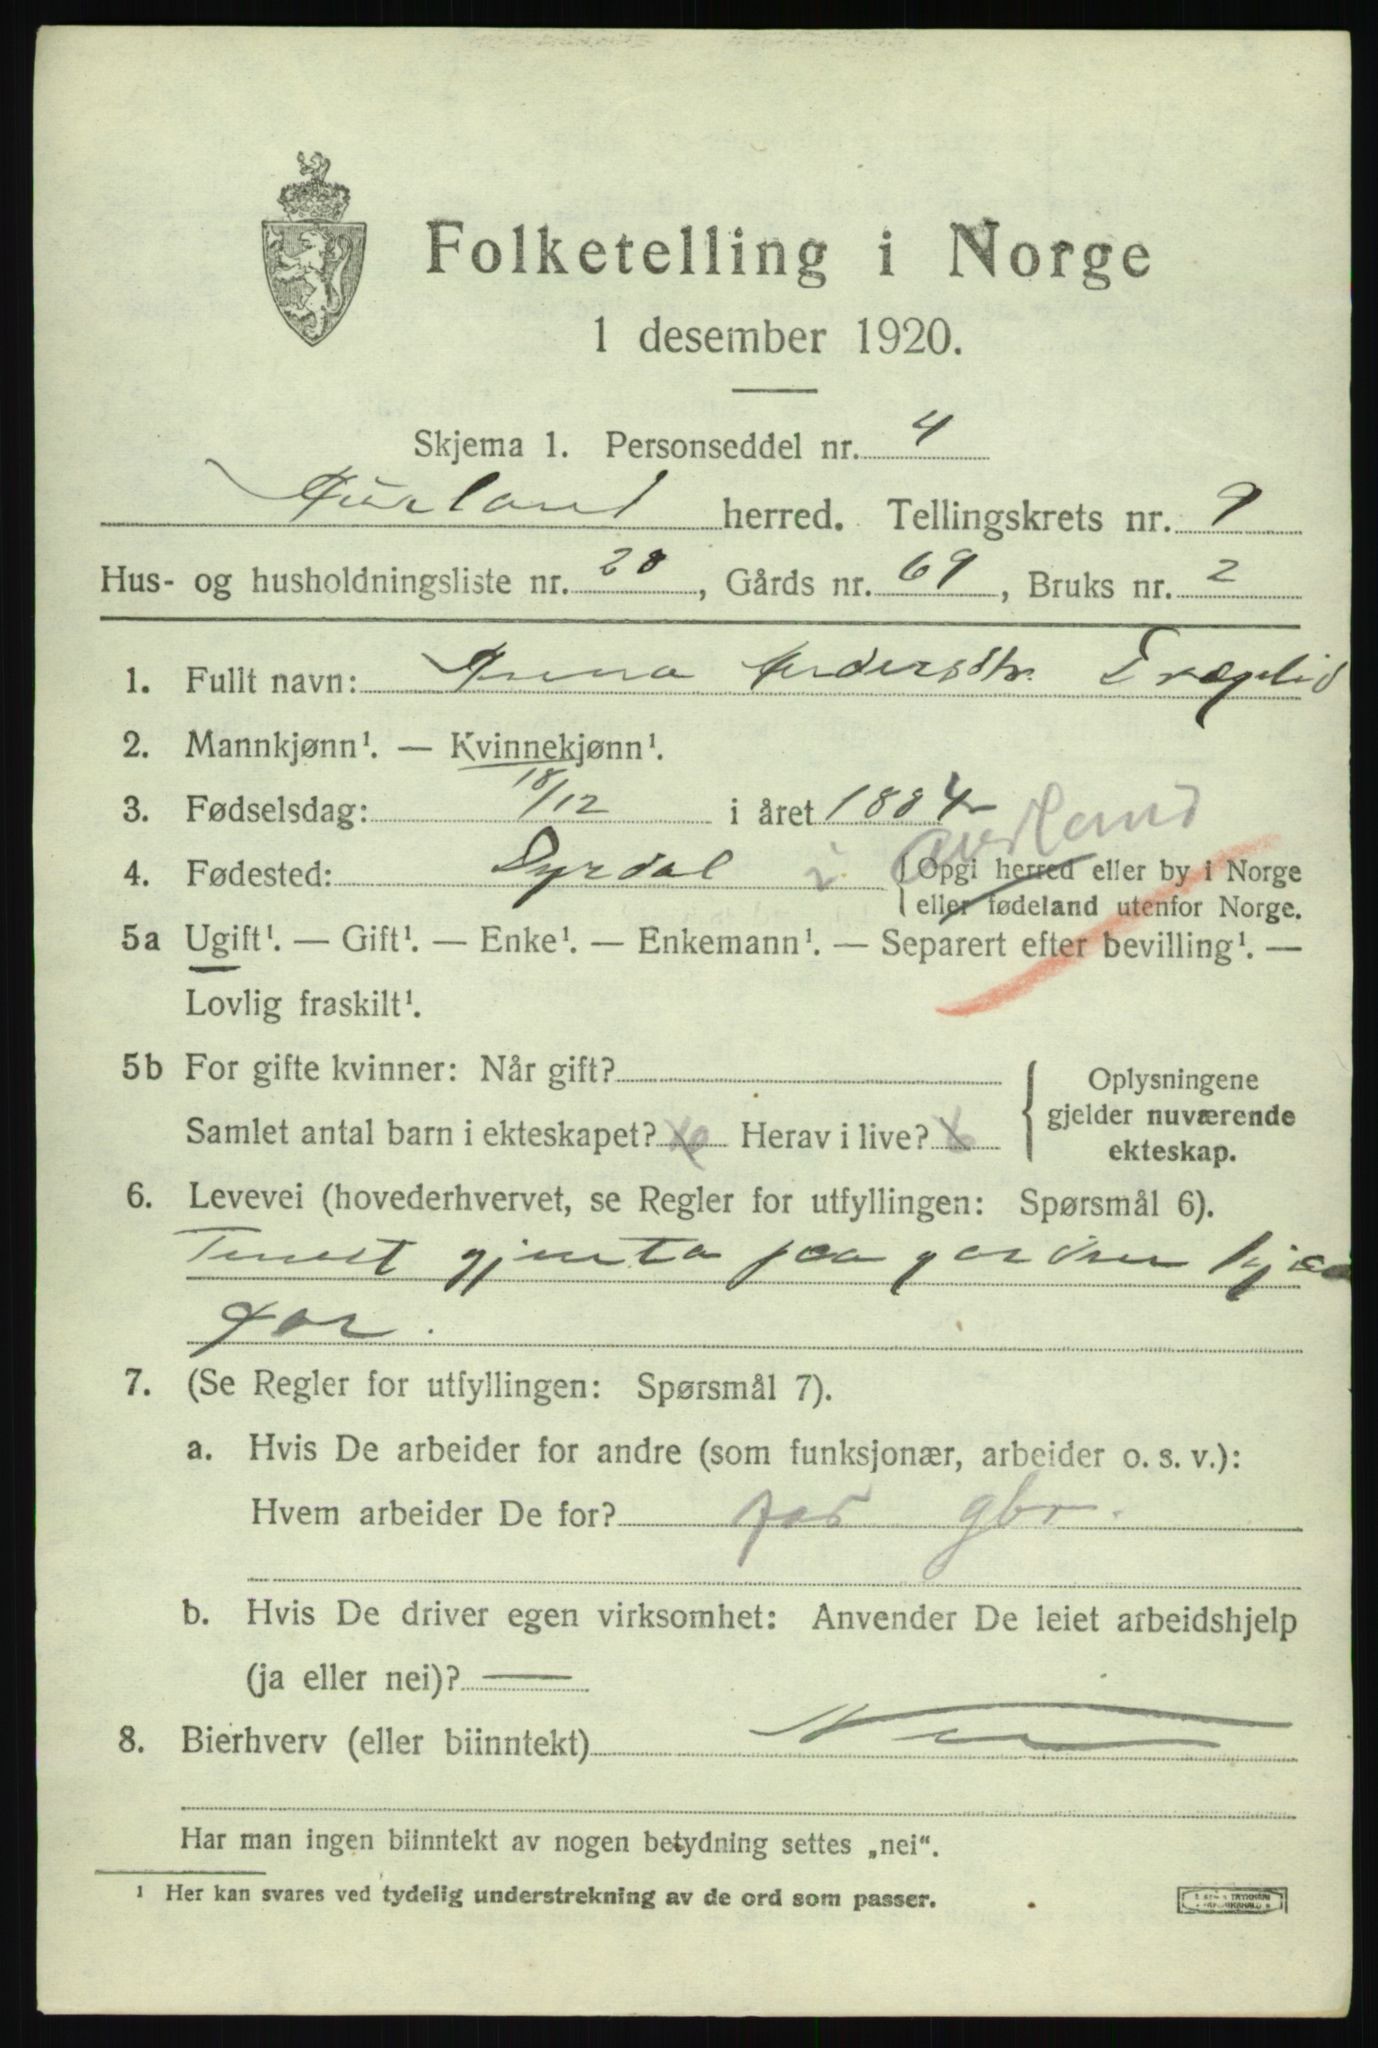 Folketelling i Norge
1 desember 1920.
Skjema 1. Personseddel nr. 4
Aurland herred. Tellingskrets nr. 9
Hus- og husholdningsliste nr. 28, Gårds nr. 69, Bruks nr. 2
1. Fullt navn: Anna Andersdtr.
2. Mannkjønn¹. — Kvinnekjønn¹.
3. Fødselsdag: 18/12 i året 1884
4. Fødested: Dyrdal i Aurland {Opgi herred eller by i Norge
eller fødeland utenfor Norge.
5a Ugift¹. — Gift¹. — Enke¹. — Enkemann¹. — Separert efter bevilling¹. —
Lovlig fraskilt¹.
5b For gifte kvinner: Når gift?
Samlet antal barn i ekteskapet? Herav i live?
{ Oplysningene
gjelder nuværende
ekteskap.
6. Levevei (hovederhvervet, se Regler for utfyllingen: Spørsmål 6).
Tenest gjenta paa garden hjaa
far.
7. (Se Regler for utfyllingen: Spørsmål 7).
a. Hvis De arbeider for andre (som funksjonær, arbeider o. s. v.):
Hvem arbeider De for? far gbr.
b. Hvis De driver egen virksomhet: Anvender De leiet arbeidshjelp
(ja eller nei)? —
8. Bierhverv (eller biinntekt) Nei
Har man ingen biinntekt av nogen betydning settes „nei“.
¹ Her kan svares ved tydelig understrekning av de ord som passer.